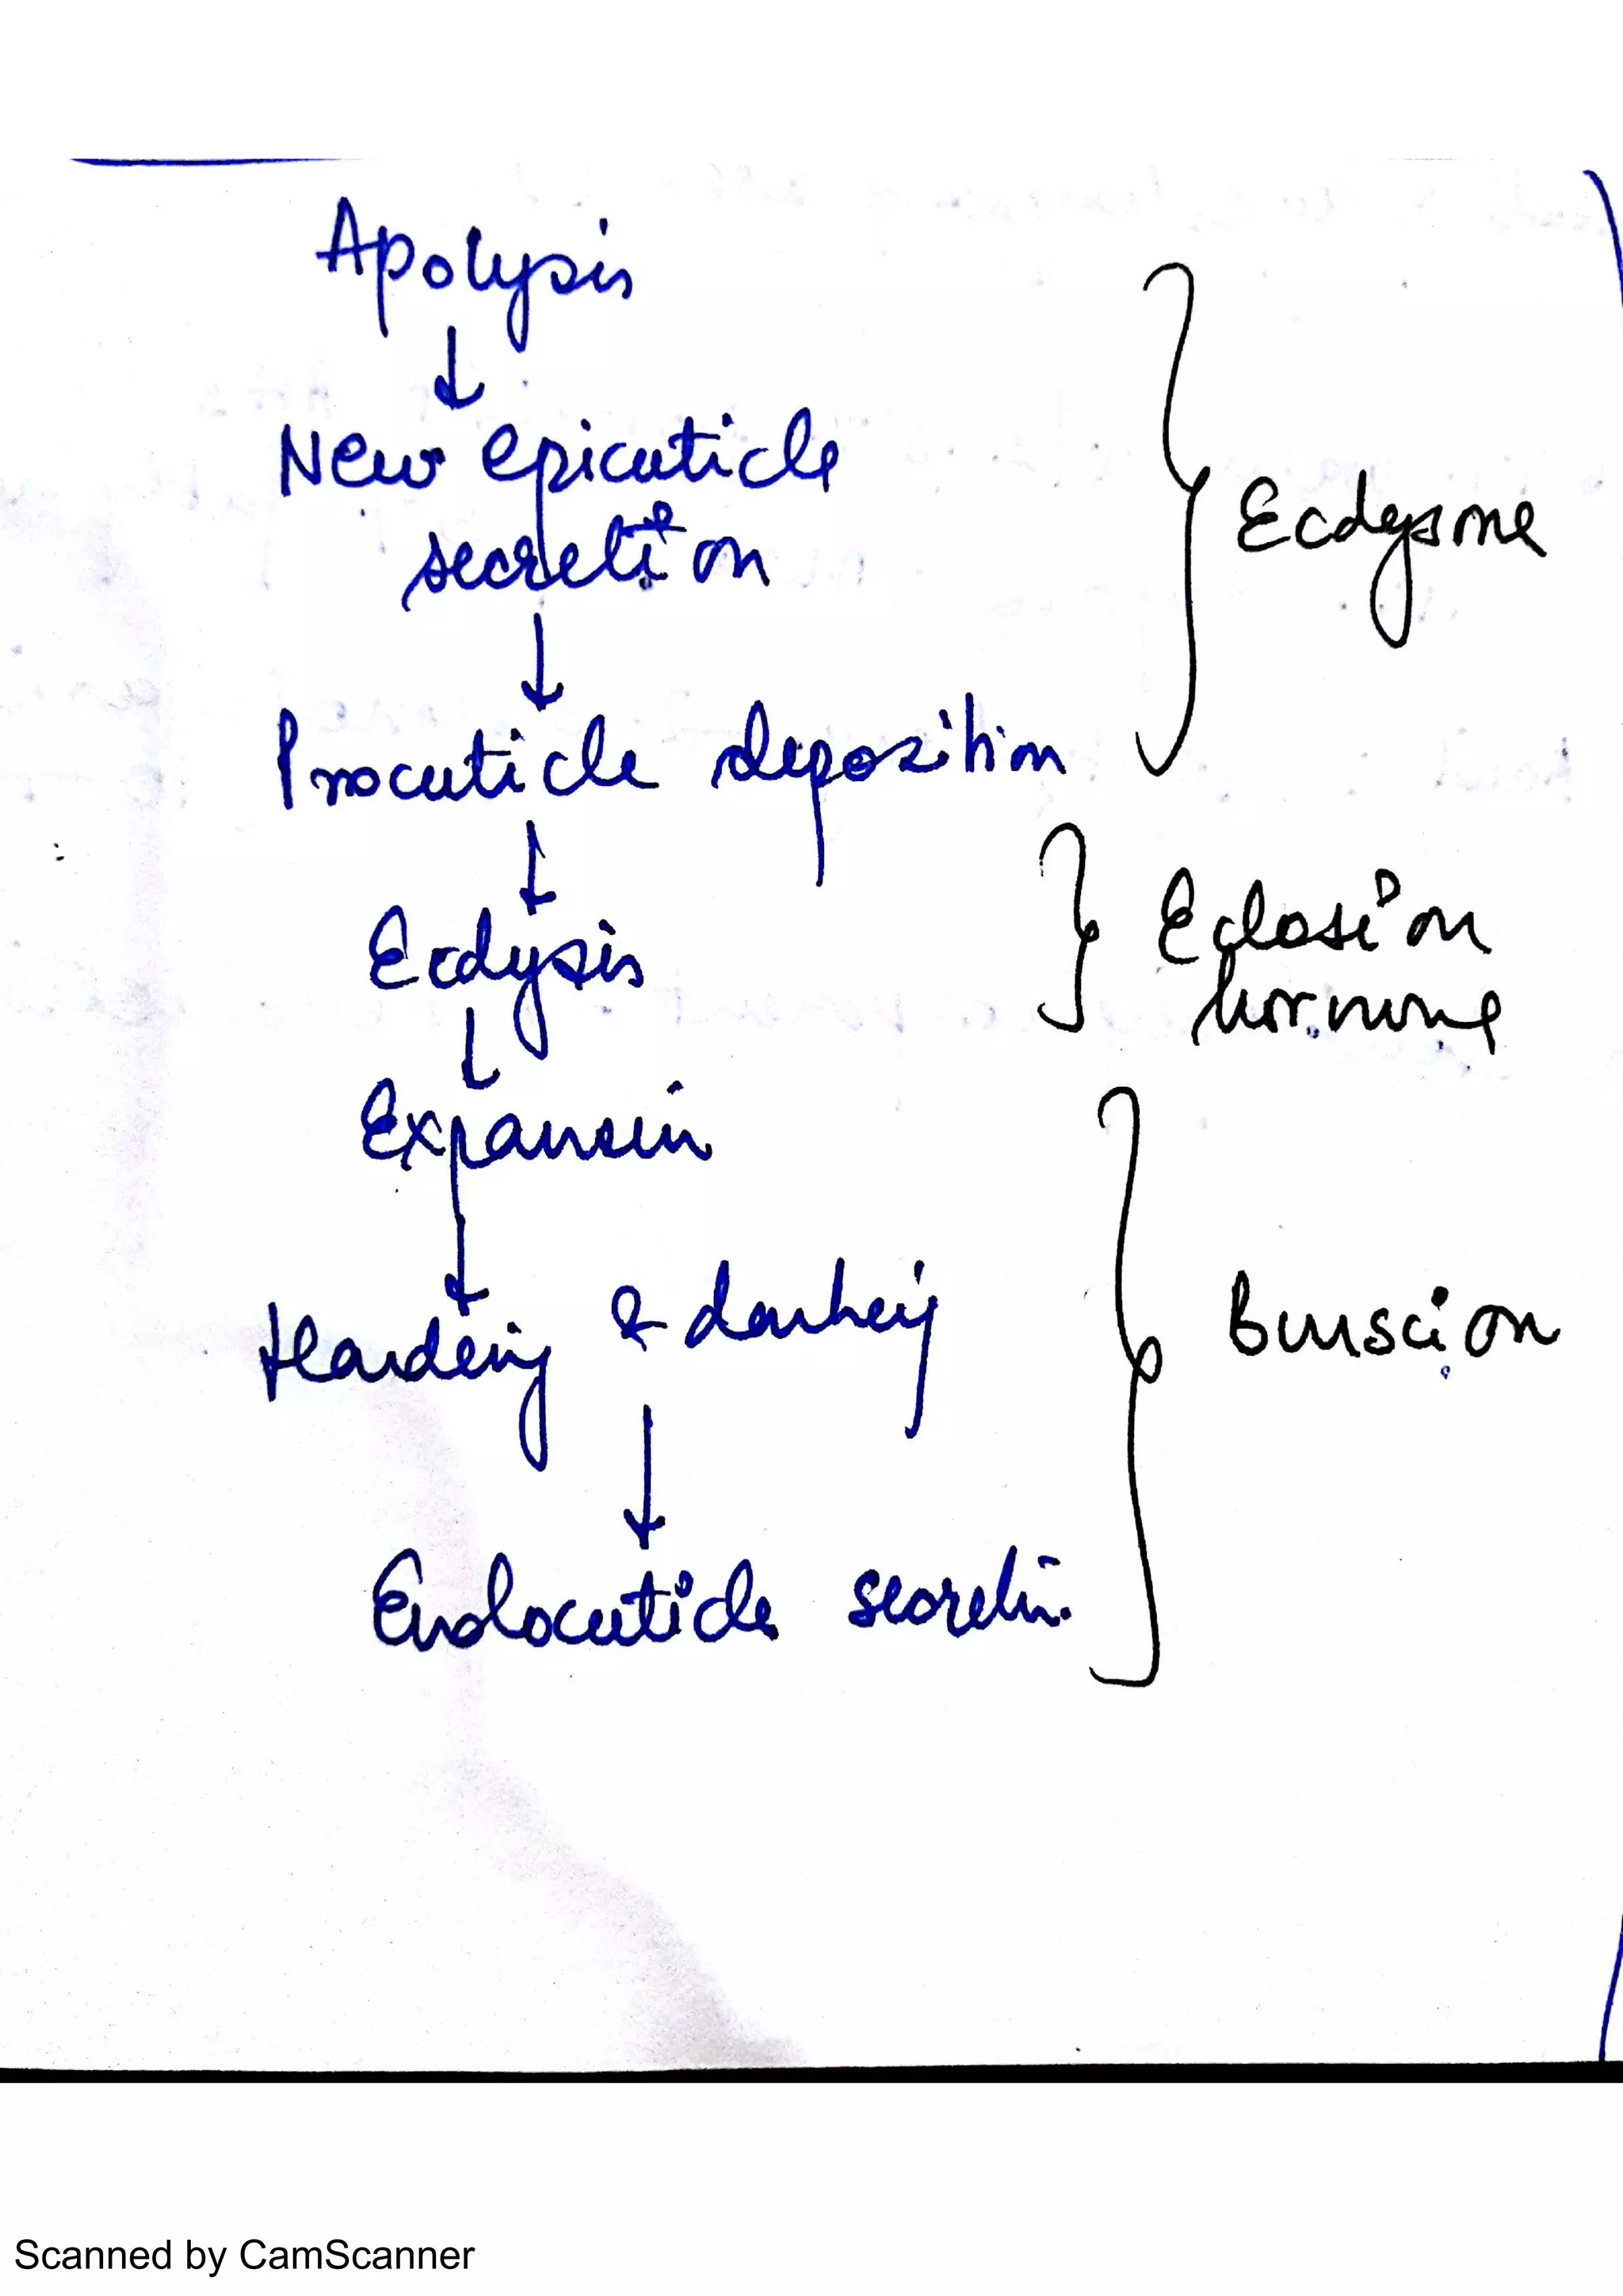 Apolysis
↓
New epicuticle
secretion
↓
Procuticle deposition
Ecdysone
↓
Ecdysis
Eclosion
hormone
↓
Expansion
↓
Hardening & darkening
Burscion
↓
Endocuticle secretion
Scanned by CamScanner